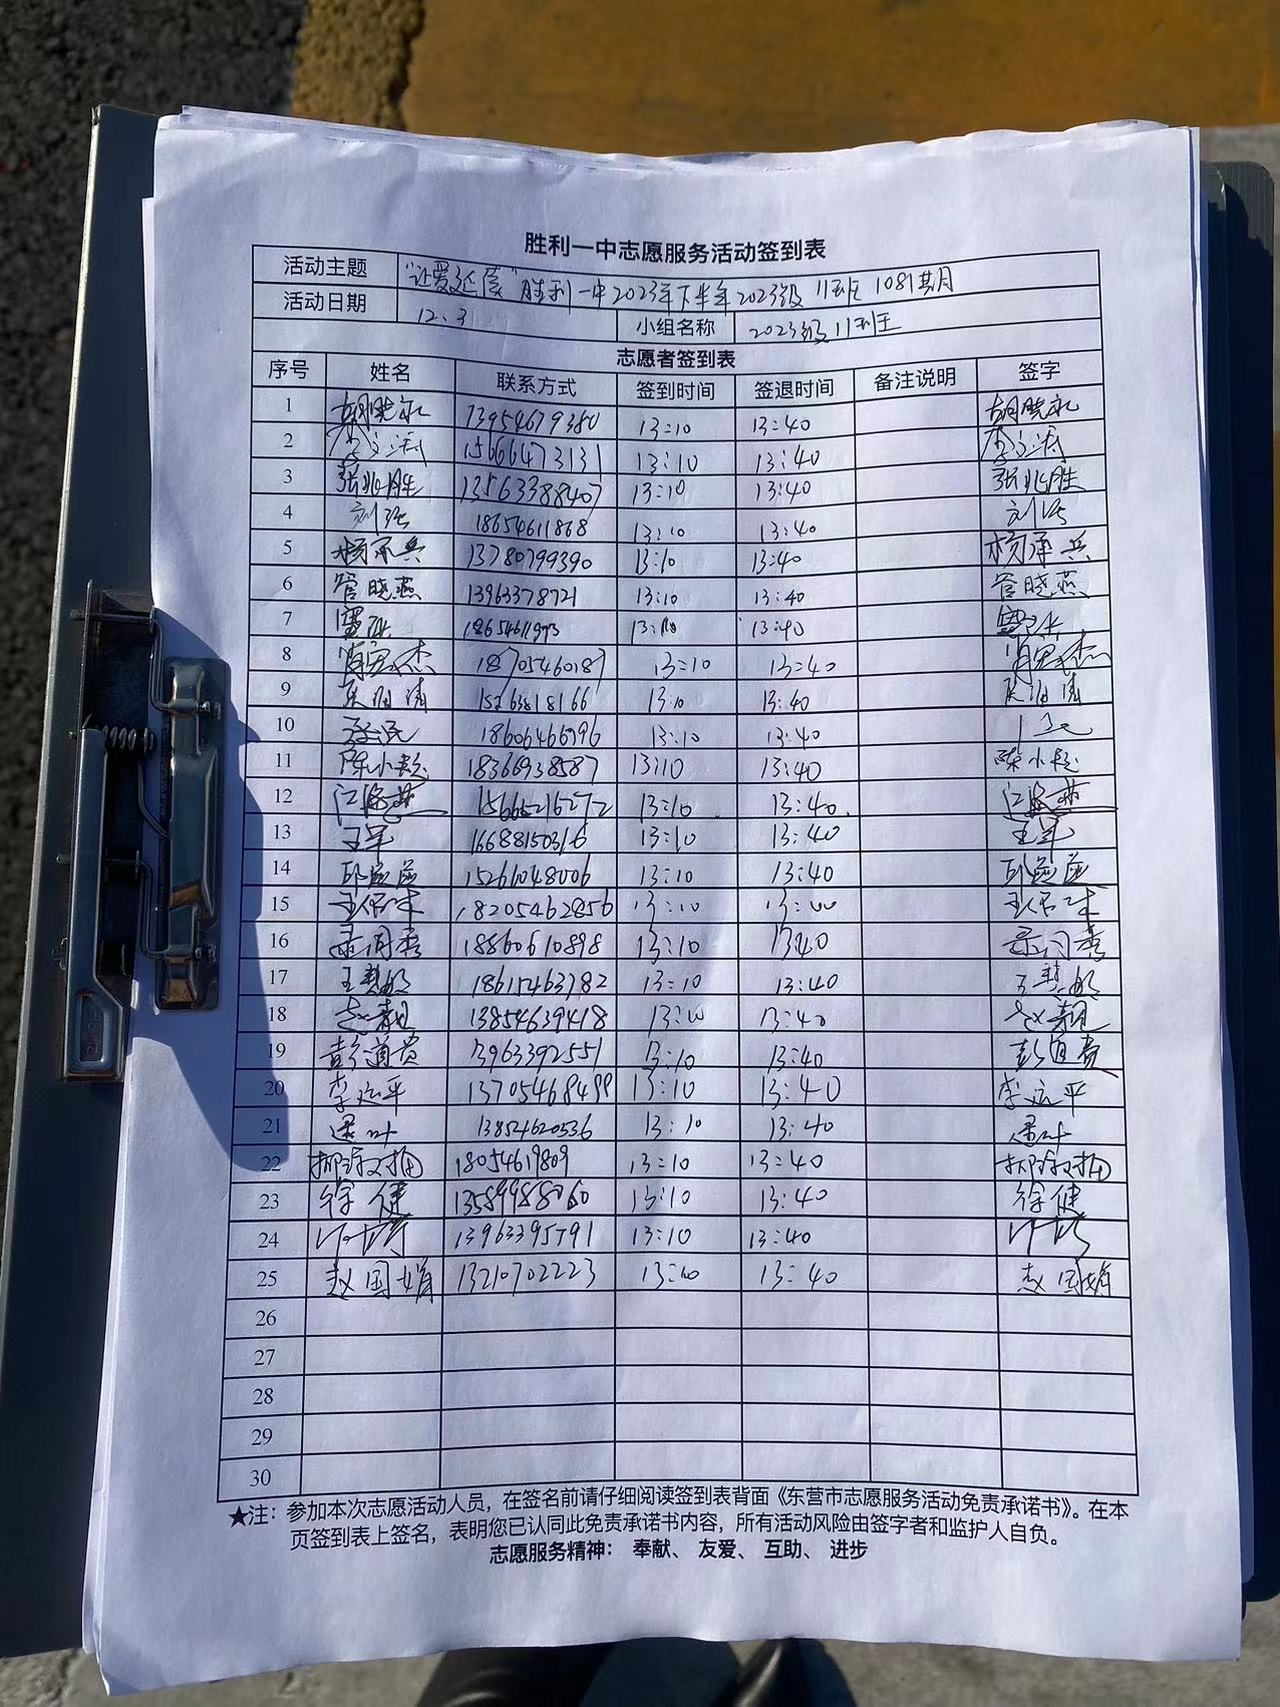 胜利一中志愿服务活动签到表
活动主题 "让爱延续"胜利一中2023年下半年2023级11班1081其月
活动日期 12.3 小组名称 2023级11班
志愿者签到表
序号 姓名 联系方式 签到时间 签退时间 备注说明 签字
1 胡晓永 13954679380 13:10 13:40 胡晓永
2 李文涛 15666473131 13:10 13:40 李文涛
3 张兆胜 13563388407 13:10 13:40 张兆胜
4 刘强 18654611868 13:10 13:40 刘强
5 杨承兵 13780799390 13:10 13:40 杨承兵
6 管晓燕 13963378721 13:10 13:40 管晓燕
7 13:10 13:40
8 18705460187 13:10 13:40
9 15263818166 13:10 13:40
10 18606466996 13:10 13:40
11 陈小超 18366938587 13:10 13:40 陈小超
12 江海燕 15665216272 13:10 13:40 江海燕
13 王军 16688150316 13:10 13:40 王军
14 15261048006 13:10 13:40
15 18205462856 13:10
16 18860610898 13:10 1340
17 王慧敏 18615463782 13:10 13:40 王慧敏
18 赵靓 13854639418 13:10 13:40 赵靓
19 彭道贵 13963392551 13:10 13:40 彭道贵
20 李运平 13705468499 13:10 13:40 李运平
21 13854620536 13:10 13:40
22 18054619809 13:10 13:40
23 徐健 13589988060 13:10 13:40 徐健
24 13963395791 13:10 13:40
25 赵国娟 13210702223 13:10 13:40 赵国娟
26
27
28
29
30
★注：参加本次志愿活动人员，在签名前请仔细阅读签到表背面《东营市志愿服务活动免责承诺书》。在本
页签到表上签名，表明您已认同此免责承诺书内容，所有活动风险由签字者和监护人自负。
志愿服务精神： 奉献、 友爱、 互助、 进步